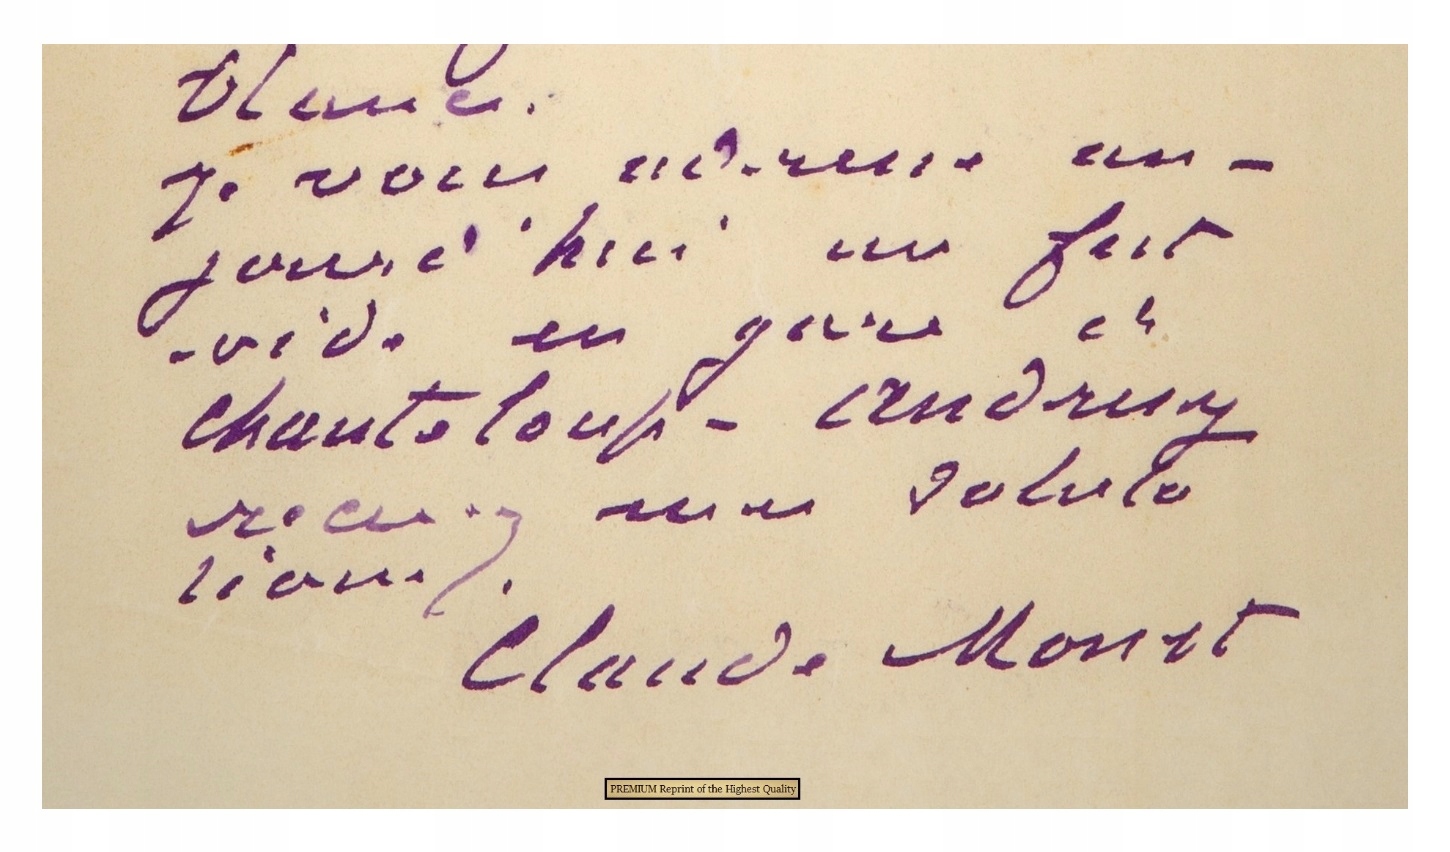 blanc.
je vous adresse au-
jourd'hui un fut
vide en gare de
Chanteloup - Andrésy
recevez mes saluta
tions.
Claude Monet
PREMIUM Reprint of the Highest Quality